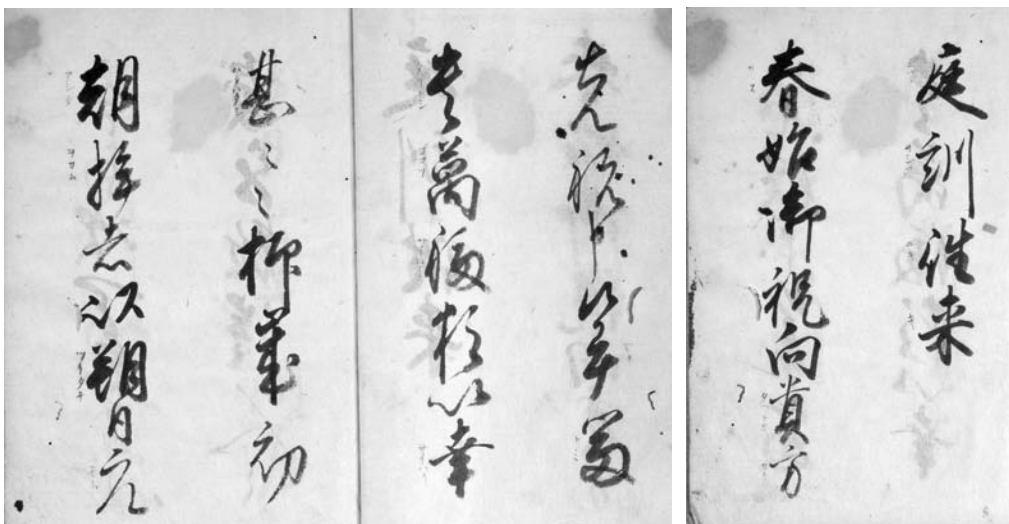 庭訓往来
春始御祝向貴方
先祝申候畢富
貴萬福猶以幸
甚〻〻抑歳初
朝拝者以朔日元